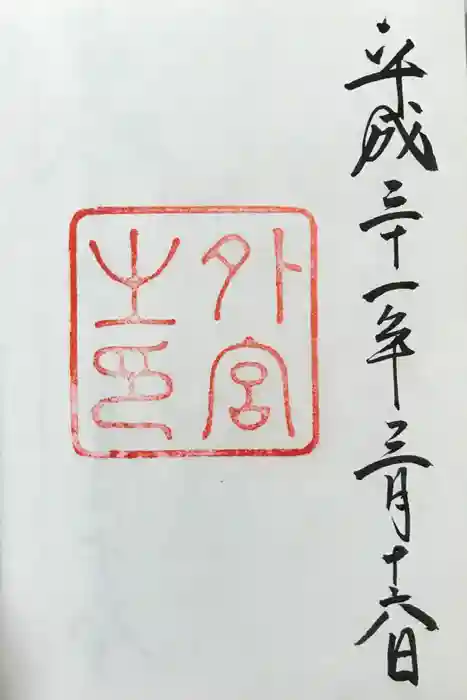 平成三十一年三月十六日
外宮
之印